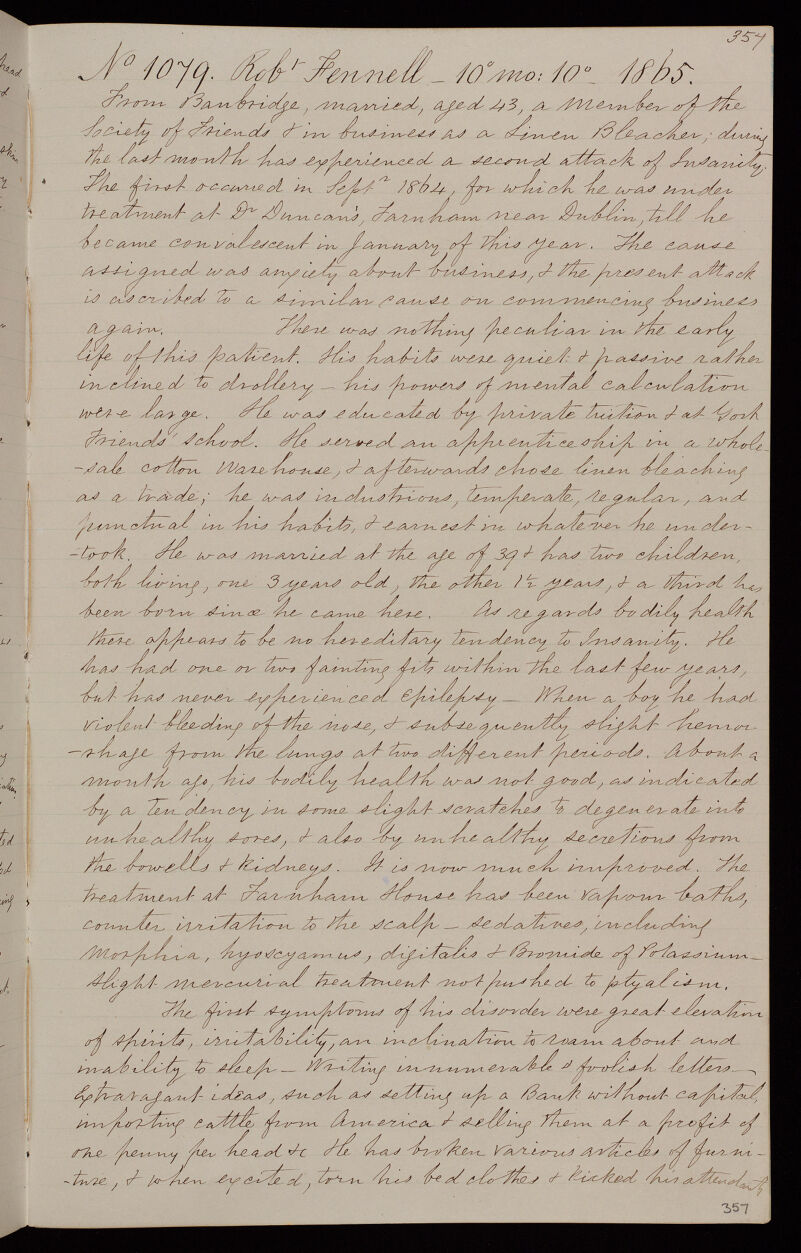 357
No 1079. Robt Fennell - 10o mo: 10o - 1865.
From Banbridge, married, aged 43, a member of the
Society of Friends & in business as a Linen Bleacher; during
the last month has experienced a second attack of Insanity.
The first occurred in Septr 1864, for which he was under
treatment at Dr Duncan's, Farnham near Dublin, till he
became convalescent in January of this year. The cause
assigned was anxiety about business, & the present attack
is ascribed to a similar cause on commencing business
again. There was nothing peculiar in the early
life of this patient. His habits were quiet & passive rather
inclined to drollery - his powers of mental calculation
were large. He was educated by private tuition & at York
Friends' school. He served an apprenticeship in a whole-
-sale cotton Warehouse, & afterwards chose linen bleaching
as a trade; he was industrious, temperate, regular, and
punctual in his habits, & earnest in whatever he under-
-took. He was married at the age of 39 & has two children,
both living, one 3 years old, the other 1½ years, & a third has
been born since he came here. As regards bodily health
there appears to be no hereditary tendency to Insanity. He
has had one or two fainting fits within the last few years,
but has never experienced Epilepsy - When a boy he had
violent bleeding of the nose, & subsequently slight hemor-
-rhage from the lungs at two different periods. About a
month ago, his bodily health was not good, as indicated
by a tendency in some slight scratches to degenerate into
unhealthy sores, & also by unhealthy secretions from
the bowells & kidneys. It is now much improved. The
treatment at Farnham House has been vapour baths,
counter irritation to the scalp - sedatives, including
Morphia, hyoscyamus, digitalis & Bromide of Potassium -
slight mercurial treatment not pushed to ptyalism.
The first symptoms of his disorder were great elevation
of spirits, irritability, an inclination to roam about and
inability to sleep - Writing innumerable & foolish letters -
Extravagant ideas, such as setting up a Bank without capital,
importing cattle from America & selling them at a profit of
one penny per head &c He has broken various articles of furni-
-ture, & when excited, torn his bed clothes & kicked his attendants
357